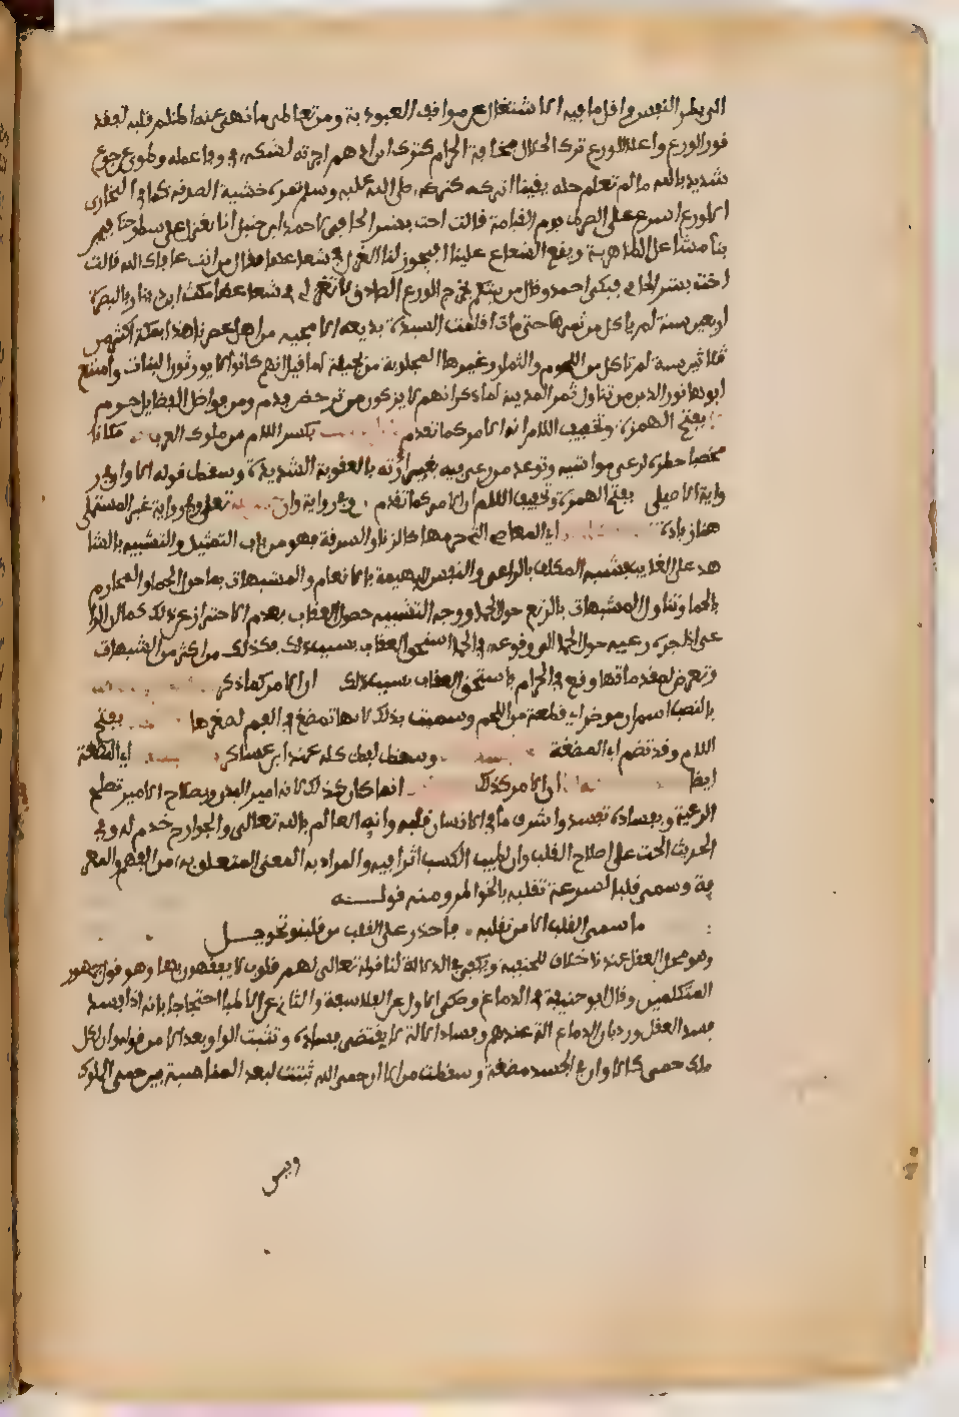 الى بطر النفس واقل ما فيه الاشتغال عن مواقف العبودية ومن تعاطى ما نهى عنه اظلم قلبه لفقد
نور الورع واعلا الورع ترك الحلال مخافة الحرام كترك ابن ادهم اجرته لشكه في وفاء عمله وطوى عن جوع
شديد بالله ما لم تعلم حله يقينا اتركه كتركه صلى الله عليه وسلم تمرة خشية الصدقة كما في البخارى
الاورع اسرع على الصراط يوم القيامة قالت اخت بشر الحافى لاحمد ابن حنبل انا نغزل على سطوحنا فيمر
بنا مشاعل الظاهرية ويقع الشعاع علينا ايجوز لنا الغزل في شعاعها فقال من انت عافاك الله قالت
اخت بشر الحافي فبكى احمد وقال من بيتكم يخرج الورع الصادق لا تغزلى في شعاعها مكث ابن دينار بالبصرة
اربعين سنة لم ياكل من تمرها حتى مات اقامت السيدة بديعة الايجية من اهل عصرنا هذا بمكة اكثر من
ثلاثين سنة لم تاكل من اللحوم والثمار وغيرها المجلوبة من بجيلة لما قيل انهم كانوا لا يورثون البنات وامتنع
ابوها نور الدين من تناول تمر المدينة لما ذكر انهم لا يزكون من ترخص ندم ومن فواضل الفضايل حرم
بفتح الهمزة وتخفيف اللام ان الامر كما تقدم بكسر اللام من ملوك العرب مكانا
مخصبا حظره لرعى مواشيه وتوعد من رعى فيه بغير اذنه بالعقوبة الشديدة وسقط قوله الا وان في
رواية الاصيلى بفتح الهمزة وتخفيف اللام ان الامر كما تقدم وفي رواية وان تعلى وفي رواية غير المستملى
هنا زيادة اى المعاصى التى حرمها كالزنا والسرقة فهو من باب التمثيل والتشبيه بالشا
هد على الغايب فشبه المكلف بالراعى والنفس البهيمة بالانعام والمشبهات بما حول الحما والمحارم
بالحما وتناول المشبهات بالرتع حول الحما ووجه التشبيه حصول العقاب بعدم الاحتراز عن ذلك كما ان الرا
عى اذا جره رعيه حول الحما الى وقوعه في الحما استحق العقاب بسبب ذلك فكذلك من اكثر من الشبهات
وتعرض لمقدماتها وقع في الحرام فاستحق العقاب بسبب ذلك ان الامر كما ذكر
بالنصب اسم ان موخر اى قطعة من اللحم وسميت بذلك لانها تمضغ في الفم لصغرها بفتح
اللام وقد تضم اى المضغة وسقط لفظ كله عند ابن عساكر اى المضغة
ايضا ان الامر كذلك انما كان كذلك لانه امير البدن وبصلاح الامير تصلح
الرعية وبفساده تفسد واشرف ما في الانسان قلبه وانه العالم بالله تعالى والجوارح خدم له وفي
الحديث الحث على اصلاح القلب وان لطيب الكسب اثرا فيه والمراد به المعنى المتعلق به من الفهم والمعر
فة وسمى قلبا لسرعة تقلبه بالخواطر ومنه قولـــه
ما سمى القلب الا من تقلبه فاحذر على القلب من قلب وتحويـــل
وهو محل العقل عندنا خلافا للحنفية ويكفى في الدلالة لنا قوله تعالى لهم قلوب لا يفقهون بها وهو قول جمهور
المتكلمين وقال ابو حنيفة في الدماغ وحكى الاول عن الفلاسفة والثانى عن الاطبا احتجاجا بانه اذا فسد
فسد العقل ورد بان الدماغ الة عندهم وفساد الالة لا يقتضى فساده وتثبت الواو بعد الا من قوله وان لكل
ملك حمى كالا وان في الجسد مضغة وسقطت من الا ان حمى الله ثبتت لبعد المناسبة بين حمى الملوك
وبين